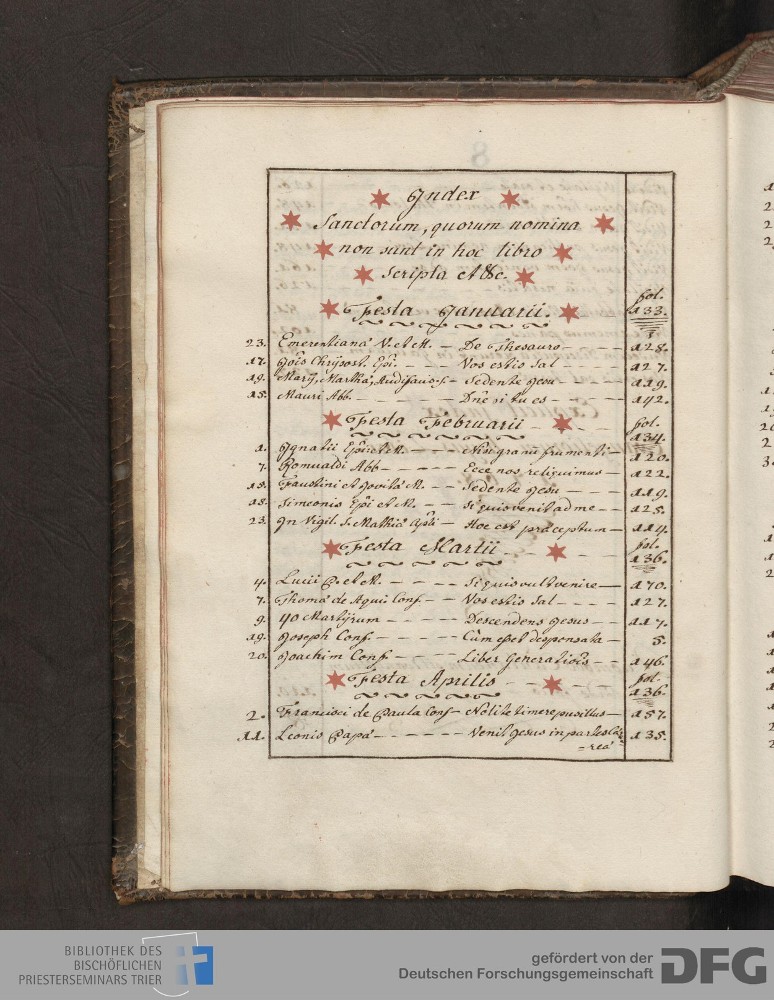 Index
Sanctorum, quorum nomina
non sunt in hoc libro
scripta &c.
fol.
Festa Januarii. 133.
23. Emerentiana V. et M. — De Thesauro — 128.
17. Chrÿsost. Epi. — Vos estis sal — 127.
19. Marÿ, Martha, — Sedente Jesu — 119.
15. Mauri Abb. — Dne si tu es — 142.
Festa Februarii fol.
134.
1. Ignatii Epi et M. — Nisi granu frumenti — 120.
7. Romualdi Abb — Ecce nos reliquimus — 122.
15. Faustini et Jovita M. — Sedente Jesu — 119.
18. Simeonis Epi et M. — Si quis venit ad me — 125.
23. In Vigil. S. Mathia Apli — Hoc est praeceptum — 114.
Festa Martii fol.
136.
4. Lucii P. et M. — Si quis vult venire — 170.
7. Thoma de Aqui. Conf — Vos estis sal — 127.
9. 40 Martÿrum — Descendens Jesus — 117.
19. Joseph Conf. — Cùm eßet desponsata — 5.
20. Joachim Conf. — Liber Generatiois — 146.
Festa Aprilis fol.
136.
2. Francisci de Paula Conf — Nolite timere pusillus — 157.
11. Leonis Papa — Venit Jesus in partes — 135.
=rea
BIBLIOTHEK DES
BISCHÖFLICHEN
PRIESTERSEMINARS TRIER
gefördert von der
Deutschen Forschungsgemeinschaft DFG